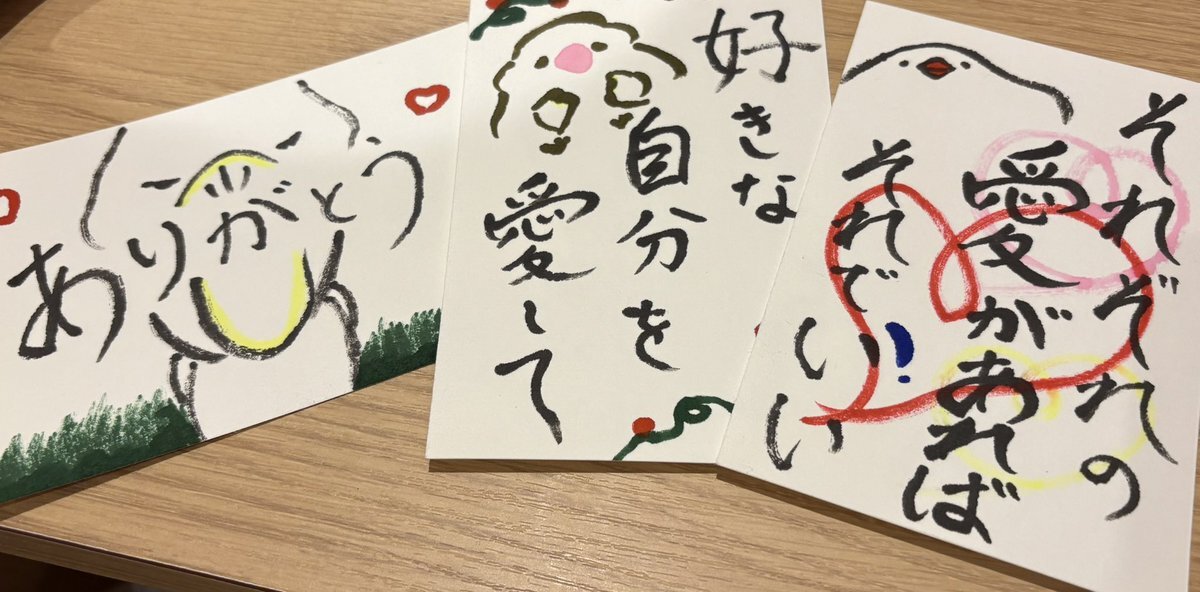 ありがとう
好きな
自分を
愛して
それぞれの
愛があれば
それで
いい!